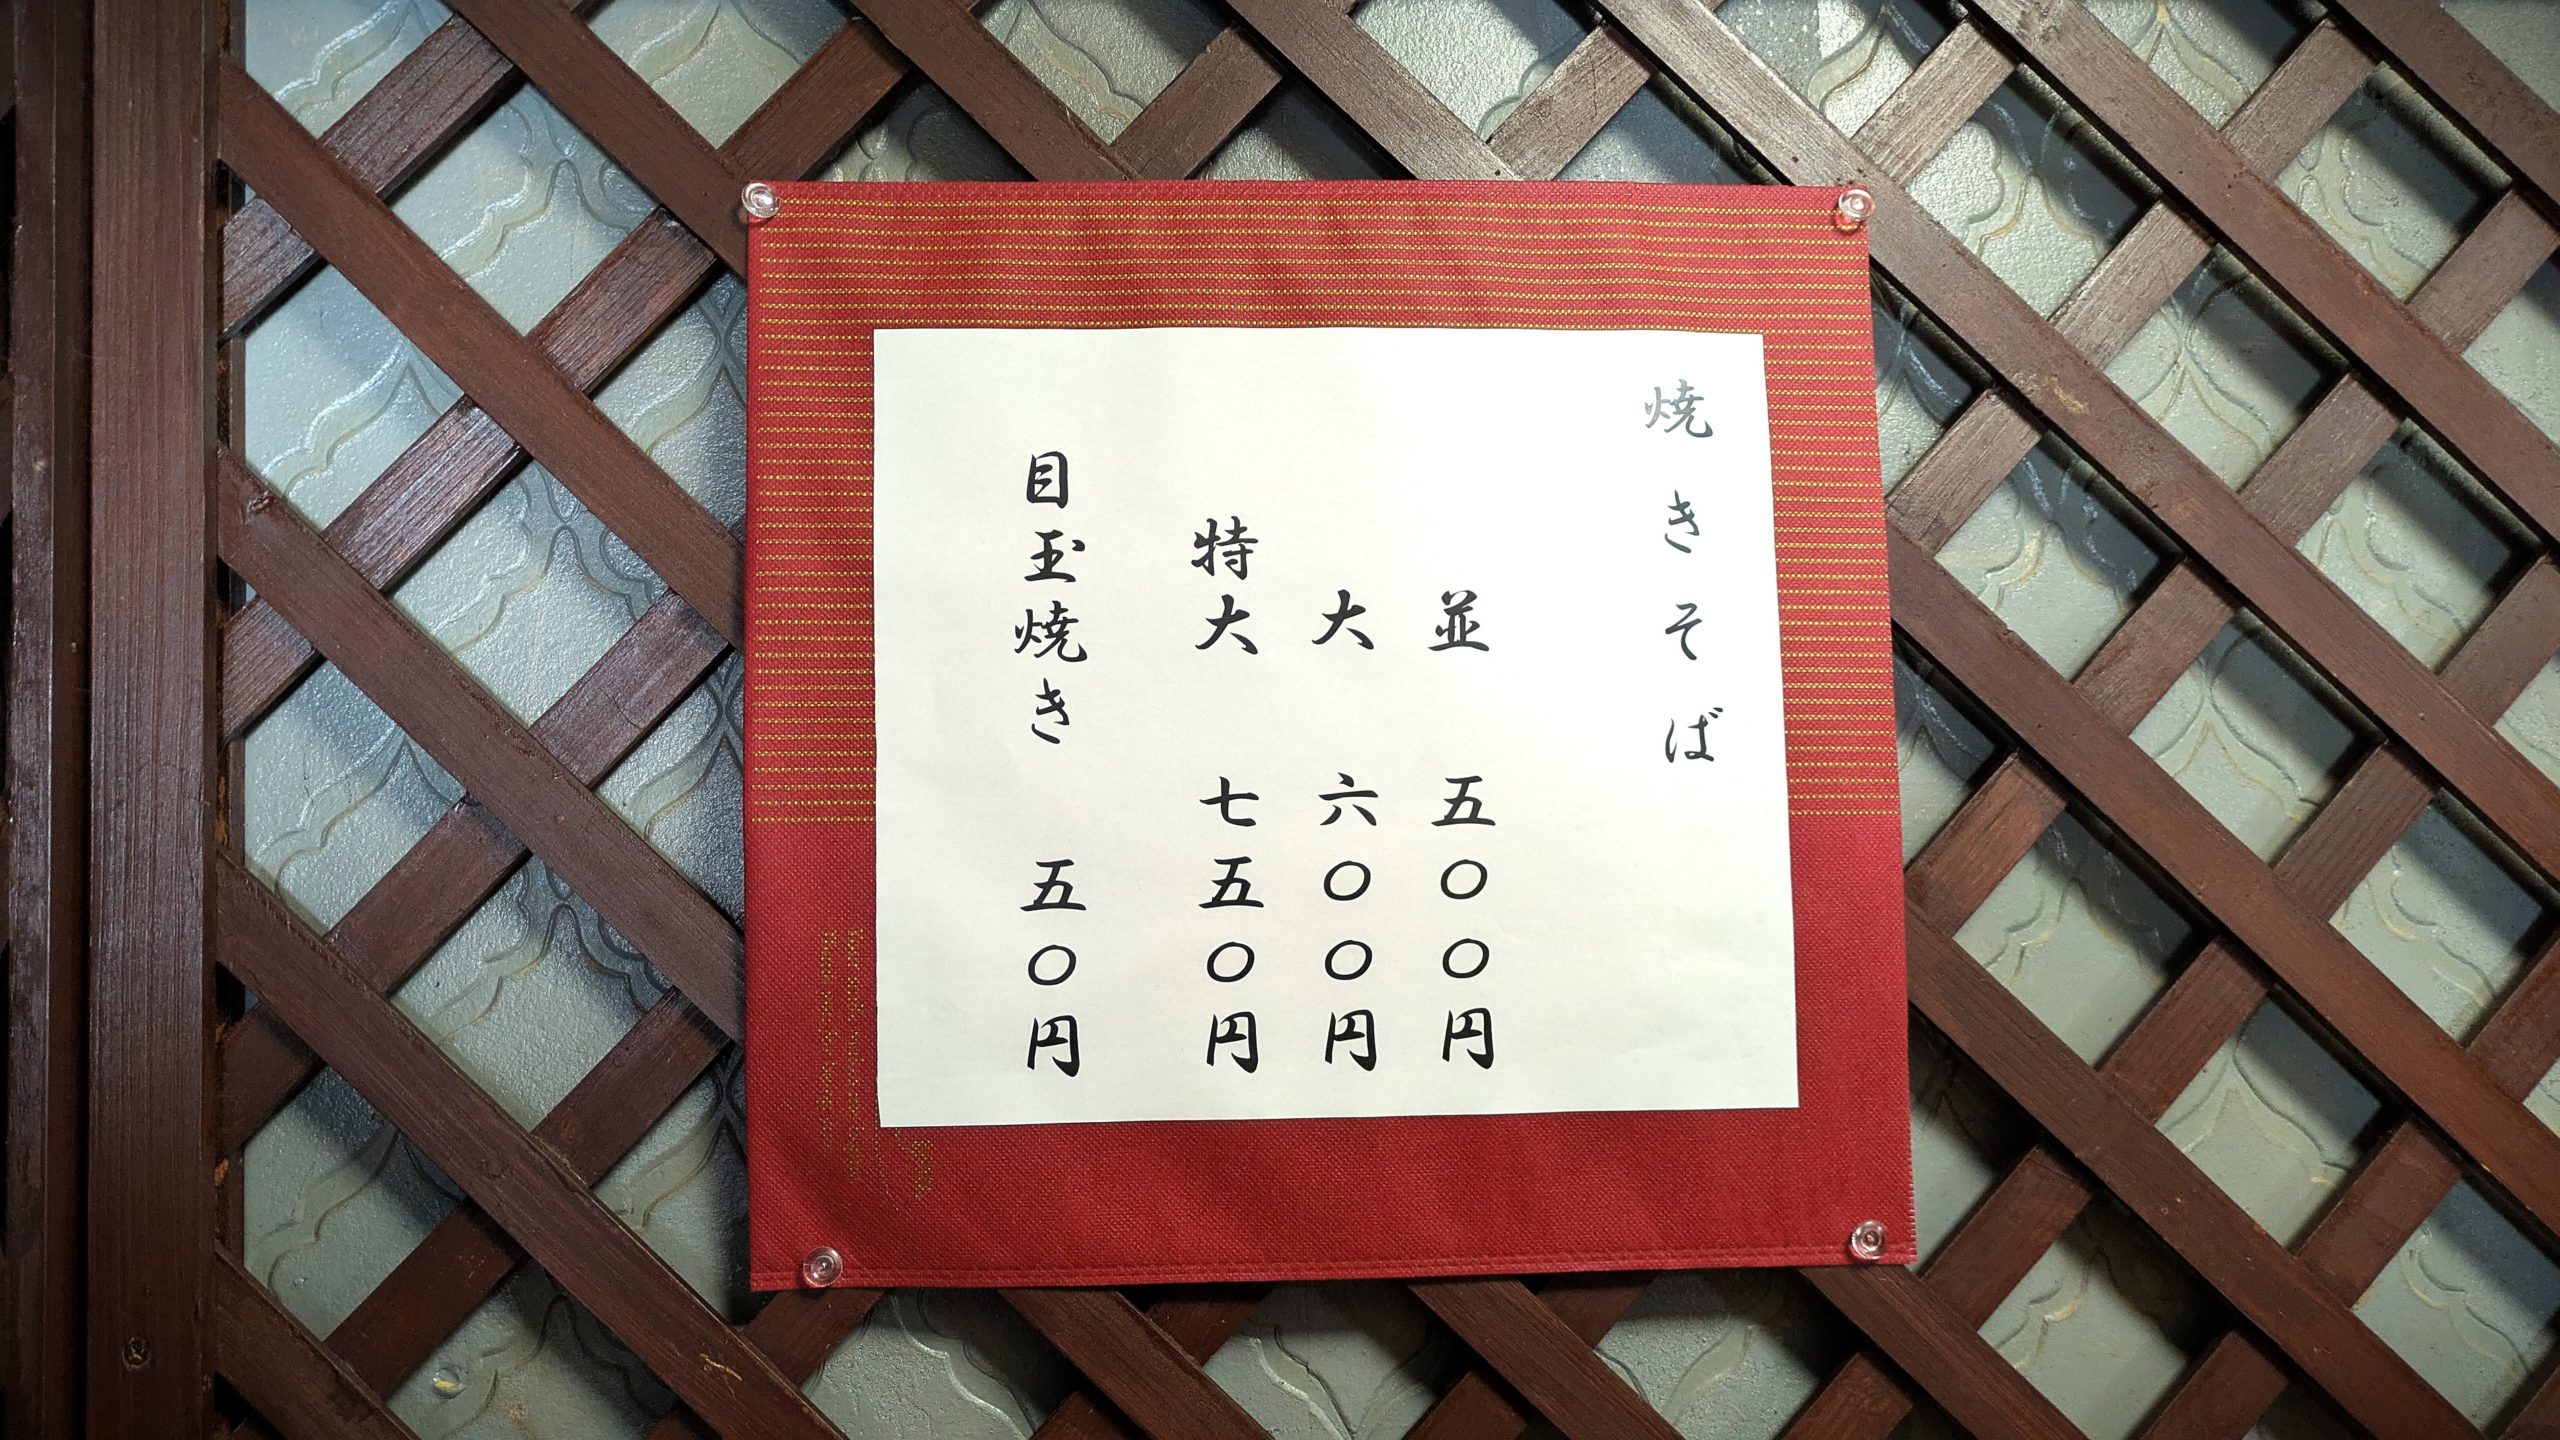 焼きそば
並 五〇〇円
大 六〇〇円
特大 七五〇円
目玉焼き 五〇円